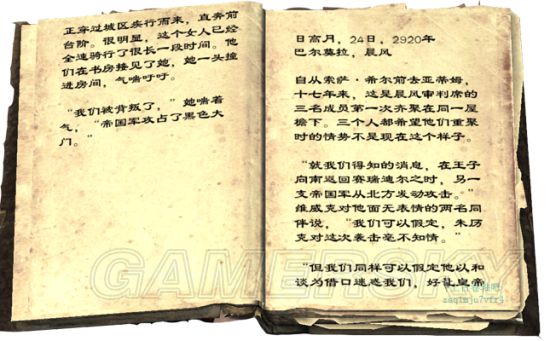 正穿过城区疾行而来，直奔前
台阶。很明显，这个女人已经
全速骑行了很长一段时间。他
们在书房接见了她，她一头撞
进房间，气喘吁吁。
“我们被背叛了，”她喘着
气，“帝国军攻占了黑色大
门。”
日高月，24日，2920年
巴尔莫拉，晨风
自从索萨·希尔前去亚蒂姆，
十七年来，这是晨风审判席的
三名成员第一次齐聚在同一屋
檐下。三个人都希望他们重聚
时的情势不是现在这个样子。
“就我们得知的消息，在王子
向南返回赛瑞迪尔之时，另一
支帝国军从北方发动攻击。”
维威克对他面无表情的两名同
伴说，“我们可以假定，朱历
克对这次袭击毫不知情。”
“但我们同样可以假定他以和
谈为借口迷惑我们，好让皇帝
GAMERSKY